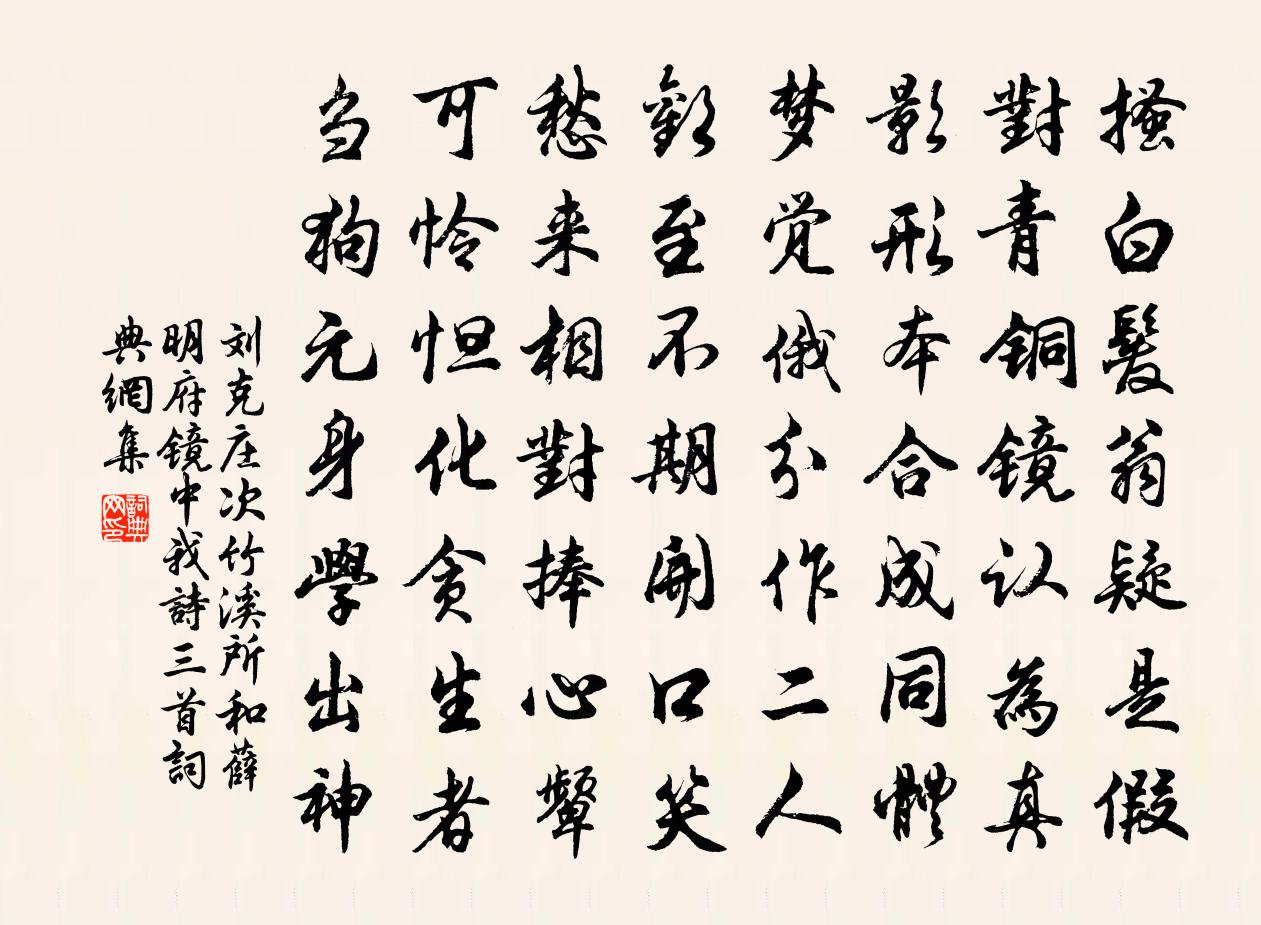 搔白髮翁疑是假
對青銅镜认為真
影形本合成同體
梦觉俄分作二人
歡至不期開口笑
愁来相對捧心顰
可怜怛化贪生者
刍狗元身學出神
刘克庄次竹溪所和薛
明府镜中我詩三首詞
典網集
詞典網印